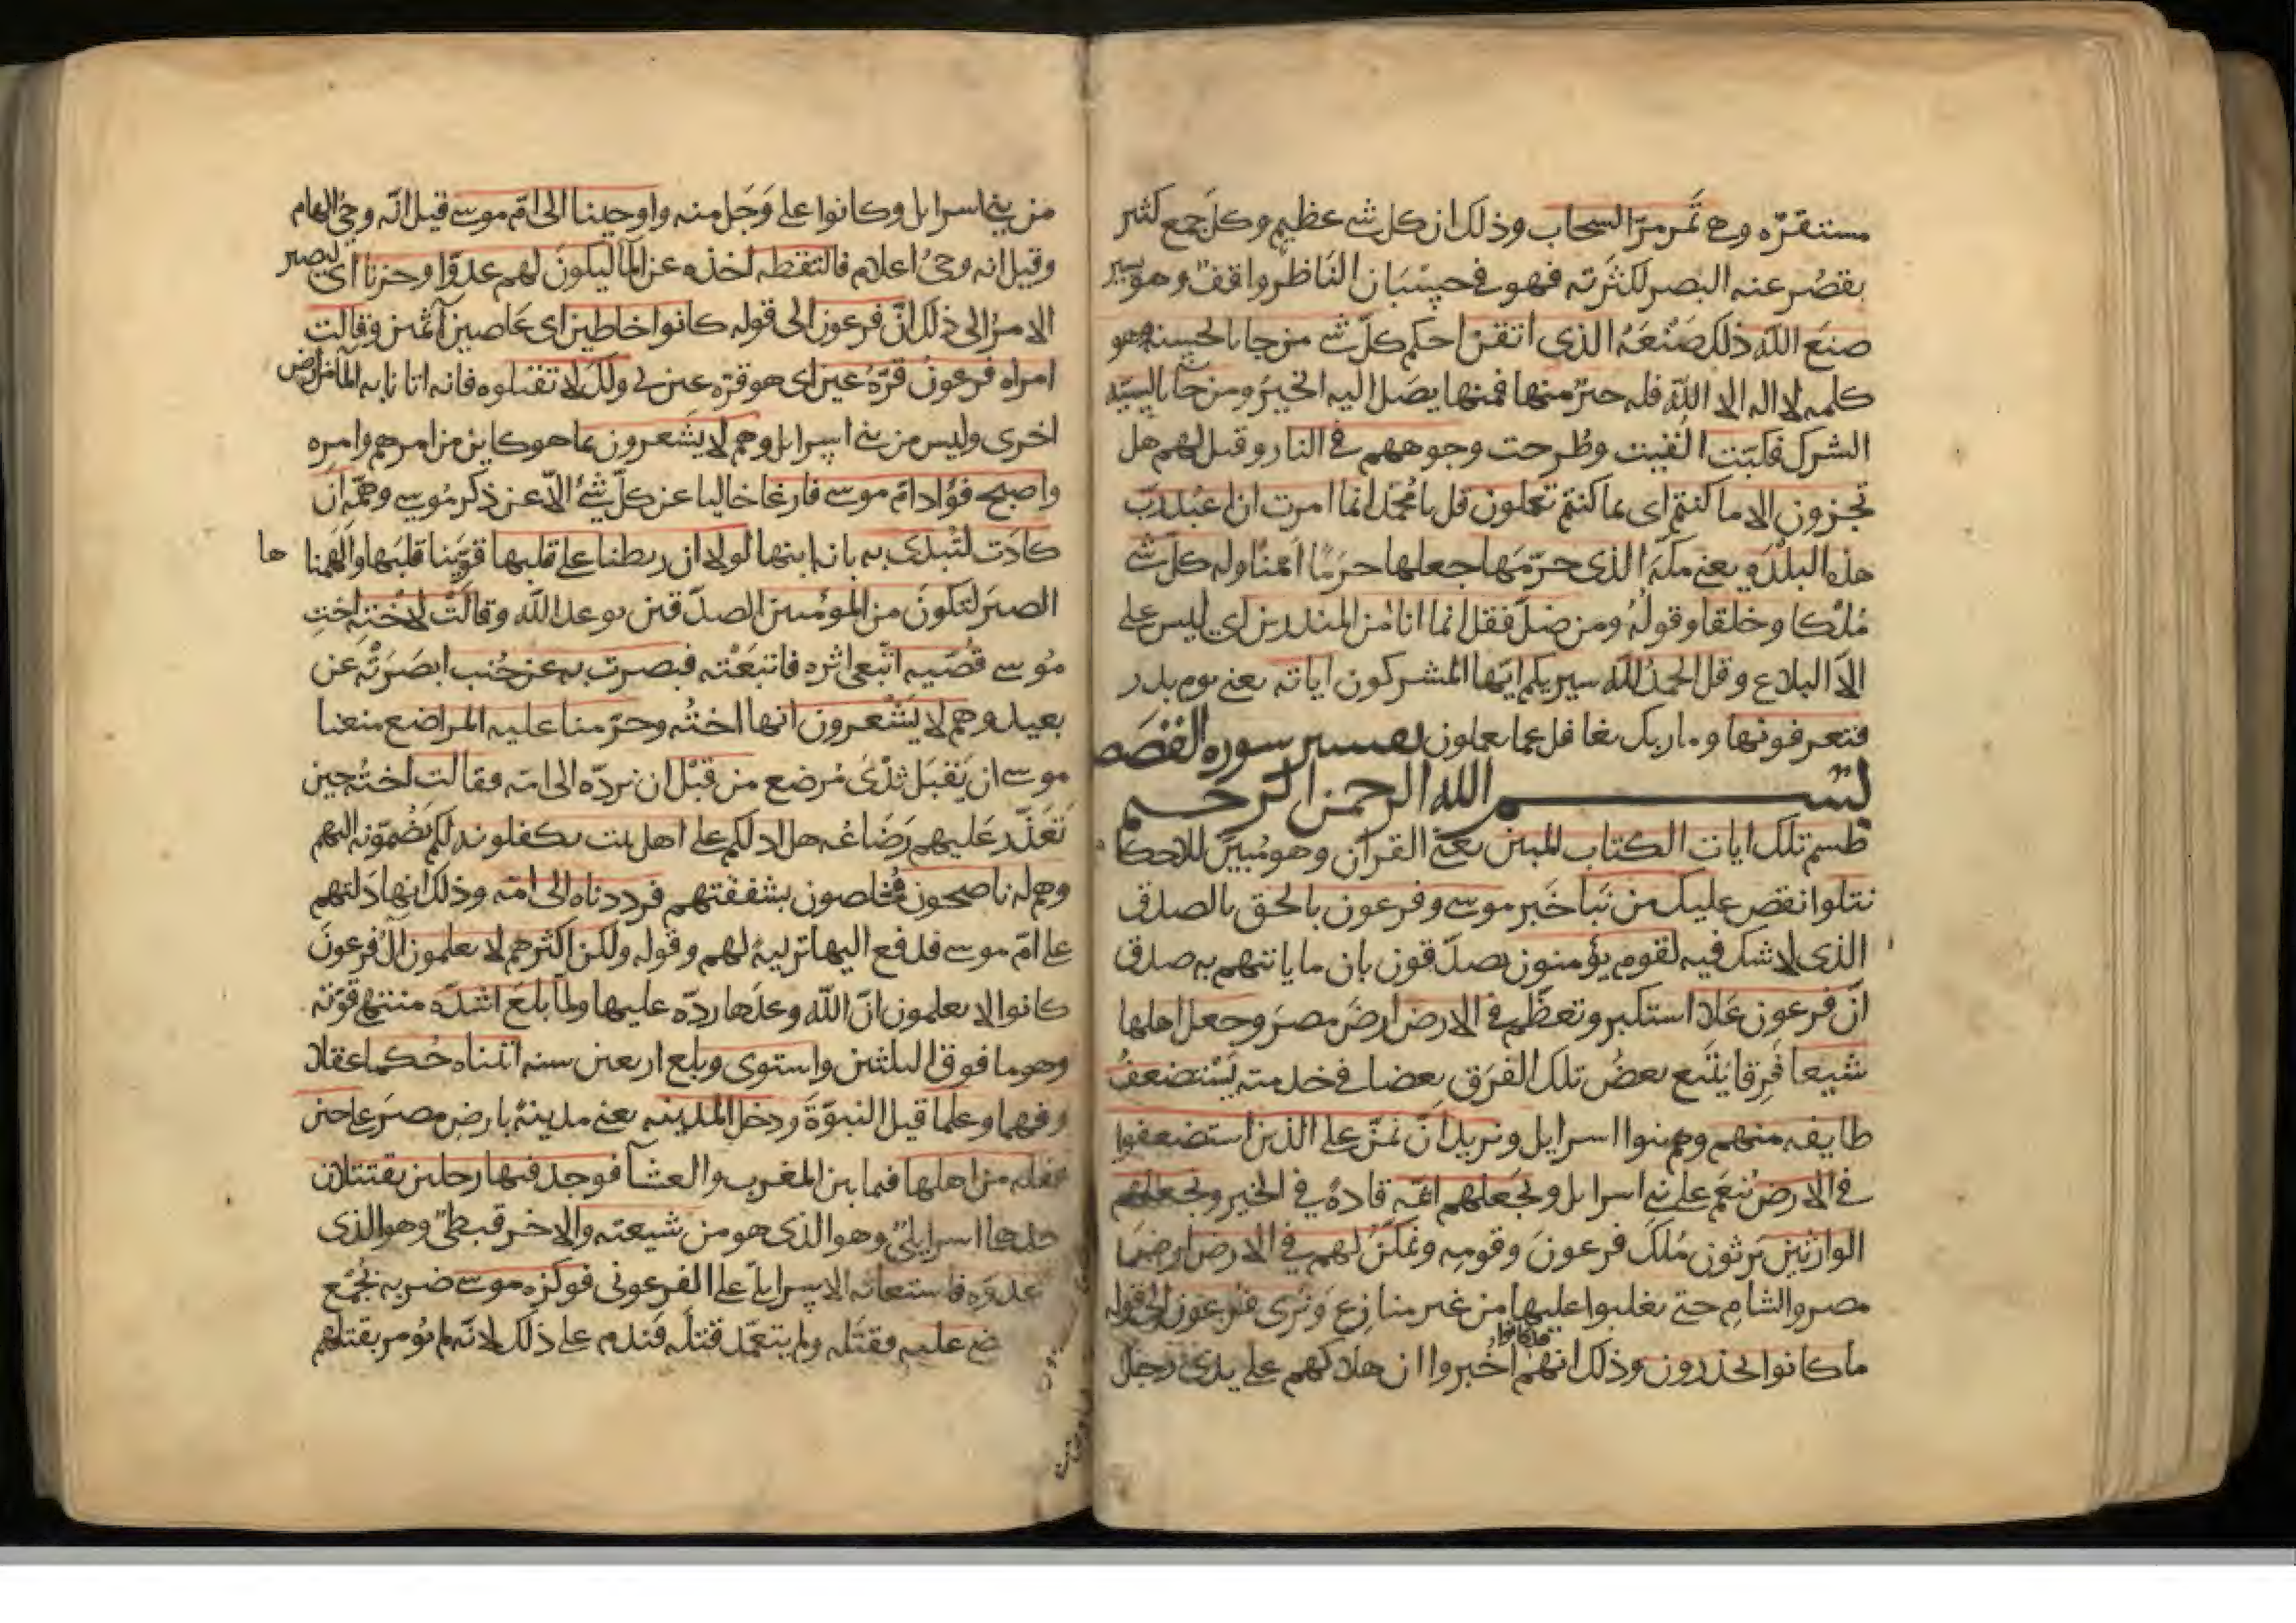 مستقرّه وهى تَمر مرّ السحاب وذلك ان كل شى عظيم وكل جمع كثير
يقصُر عنه البصر لكثرته فهو فى حِسْبَان النَاظر واقف وهو يسير
صنعَ اللّه ذلك صَنْعَهُ الذى اتقن احكم كلّ شى من جا بالحسنه وهو
كلمه لا اله الا اللّه فله خيرٌ منها فمنها يصَل اليه الخيرَ ومن جا بالسيّه
الشرك فكبّت الٌقيت وطُرحت وجوههم فى النار وقيل لهم هل
تجزون الا ما كنتم اى بما كنتم تعملون قل يا محمّد انما امرت ان اعبُد ربّ
هذه البلدَه يعنى مكّه الذى حرّمَها جعلها حرَمًا امنًا وله كلّ شى
مُلكا وخلقا وقولُه ومن ضلّ فقل انما انا من المنذرين اي ليس على
الاّ البلاع وقل الحمدُ للّه سيريكم ايّها المشركون اياته يعنى يوم بدر
فتعرفونها وما ربك بغافل عما يعملون تفسير سوره القصَص
بسم الله الرحمن الرحيم
طسم تلك ايات الكتاب المبين يعنى القرآن وهو مُبيّن للاحكا
نتلوا نقص عليك من نَبا خَبر موسى وفرعون بالحق بالصدق
الذى لا شك فيه لقوم يؤمنون يصدّقون بان ما ياتيهم به صدق
انّ فرعون عَلا استكبر وتعظّم فى الارض ارضَ مصرَ وجعل اهلها
شيعا فِرقا يَتْبَع بعضُ تلك الفرَق بعضا فى خدمته يَسْتضعفُ
طايفه منهم وهم بنوا اسرايل ونريد انّ نمنّ على الذين استضعفوا
فى الارض نُنعَم على بنى اسرايل ونجعلهم ائمّه قادهٌ فى الخير ونجعلهم
الوارثين يَرثون مُلكَ فرعونَ وقومِه ونمكّنُ لهم فى الارض ارض
مصر والشام حتى يغلبوا عليها من غير منازِع ونُرى فرعون الى قوله
ما كانوا يحذرون وذلك انهم قد كانوا اخُبروا ان هلاكهم على يدى رجل
من بنى اسرايل وكانوا على وَجَل منه واوحينا الى امّ موسى قيل انّه وحىُ الهام
وقيل انه وحىُ اعلام فالتقطه اخذه عن الما ليكونَ لهم عدوّا وحزنا اى ليصير
الامرُ الى ذلك انّ فرعون الى قوله كانوا خاطين اى عَاصين آثمين وقالت
امراه فرعونُ قرّهُ عين اى هو قرّه عين لى ولك لا تقتلوه فانه اتانا به الما من ارض
اخرى وليس من بنى اسرايل وهم لا يشعرون بما هو كاين من امرهم وامره
واصبح فؤاد امّ موسى فارغا خاليا عن كلّ شئ الاّ عن ذكر مُوسى وهمّه ان
كادَت لتُبدى به بانه ابنها لولا ان ربطنا على قلبها قوّينا قلبَها والهَمنا ها
الصبَر لتكونَ من المؤمنين المصدّقين بوعد اللّه وقالَتْ لاخته اختِ
مُوسى قُصّيه اتبعى اثره فاتبَعْته فبصرت به عن جُنب ابصَرَتْه عن
بعيد وهم لا يَشْعرون انها اختُه وحرّمنا عليه المراضع منعنا
موسى ان يَقبَل ثدْىَ مُرضع من قبْل ان نردّه الى امّه فقالت اختُه حين
تعَذّر عَليهم رَضَاعُه هل ادلكم على اهل بيت يكفلونه لكم يَضُمّونه اليهم
وهم له ناصحون مُخلصون بشفقتهم فرددناه الى امّه وذلك انها دَلتهم
على امّ موسى فدفع اليها تربيهُ لهم وقوله ولكن اكثرهم لا يعلمون الُ فرعونَ
كانوا لا يعلمون انّ اللّه وعدَها ردّه عليها ولمّا بلغ اشدّه منتهى قوّته
وهو ما فوق الثلثين واستوى وبلغ اربعين سنه اتيناه حُكما عقلا
وفهما وعلما قيل النبوّةَ ودخل المدينه يعنى مدينهً بارض مصرَ على حين
غفله من اهلها فيما بين المغرب والعشآ فوجد فيها رجلين يقتتلان
احدهما اسرايلىّ وهو الذى هو من شيعته والاخر قبطىّ وهو الذى
عدوّه فاستغاثه الاسرايلىّ على الفرعونى فوكزه موسى ضربه بجُمْع
عليه فقتَله ولم يتعمّد قتْلَه فندم على ذلك لانّه لم يُومر بقتلهم